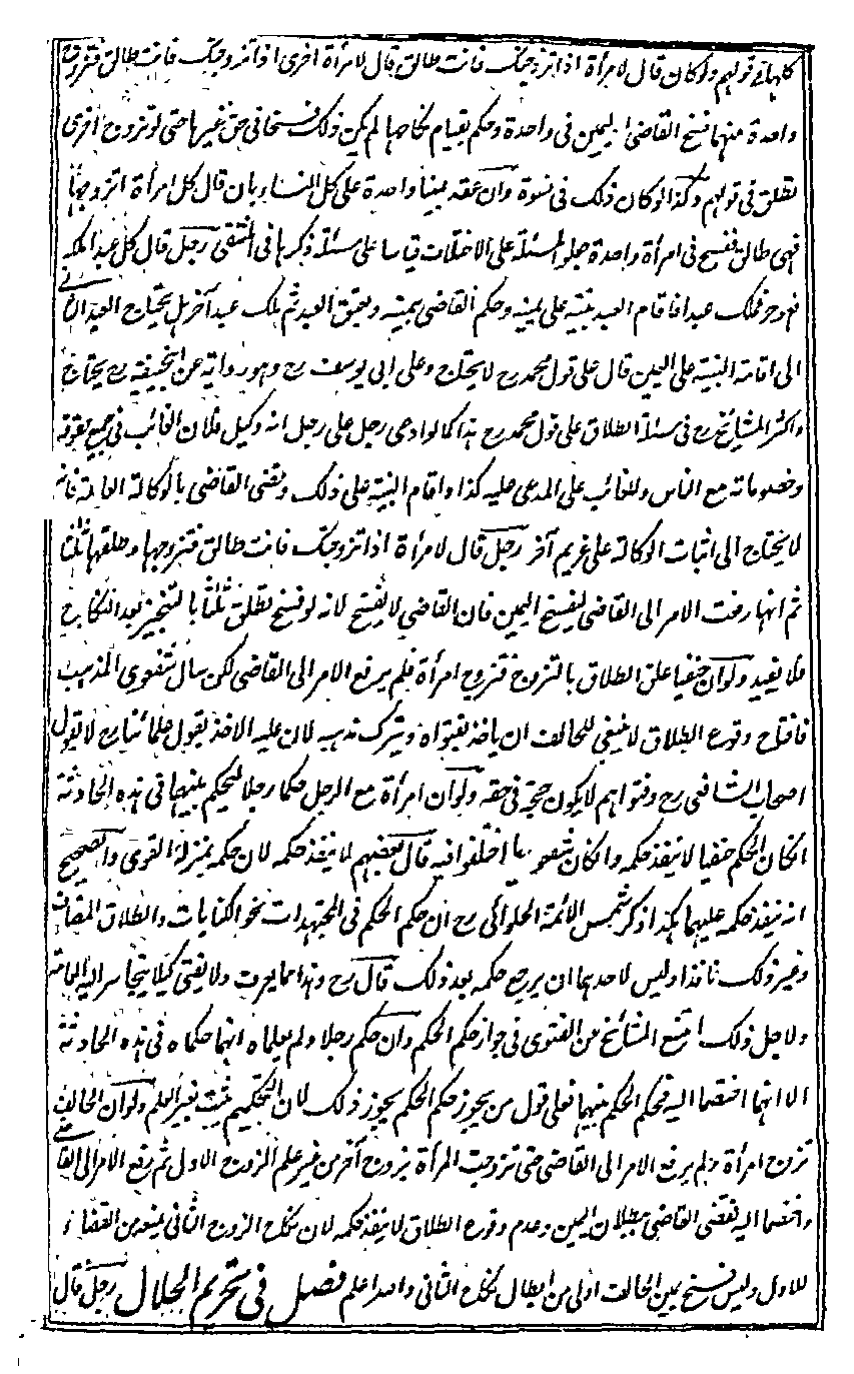 كلها في قولهم ولو كان قال لامرأة اذا تزوجتك فانت طالق قال لامرأة اخرى اذا تزوجتك فانت طالق فتزوج
واحدة منهما فسخ القاضى اليمين فى واحدة وحكم بقيام نكاحها لم يكن ذلك فسخا فى حق غيرها حتى لو تزوج اخرى
تطلق فى قولهم وكذا لو كان ذلك فى نسوة وان عقد يمينا واحدة على كل النساء بان قال كل امرأة اتزوجها
فهى طالق ففسخ فى امرأة واحدة جعلوا المسئلة على الاختلاف قياسا على مسئلة ذكرها فى المنتقى رجل قال كل عبد املكه
فهو حر فملك عبدا فاقام العبد بينة على يمينه وحكم القاضى بيمينه وبعتق العبد ثم ملك عبدا آخر هل يحتاج العبد الثانى
الى اقامة البينة على اليمين قال على قول محمد رح لا يحتاج وعلى ابى يوسف رح وهو رواية عن ابيحنيفة رح يحتاج
واكثر المشائخ رح فى مسئلة الطلاق على قول محمد رح هذا كما لو ادعى رجل على رجل انه وكيل فلان الغائب فى جميع حقوقه
وخصوماته مع الناس وللغائب على المدعى عليه كذا واقام البينة على ذلك وقضى القاضى بالوكالة العامة فانه
لا يحتاج الى اثبات الوكالة على غريم آخر رجل قال لامرأة اذا تزوجتك فانت طالق فتزوجها وطلقها ثلثا
ثم انها رفعت الامر الى القاضى ليفسخ اليمين فان القاضى لا يفسخ لانه لو فسخ تطلق ثلثا بالتنجيز بعد النكاح
فلا يفيد ولو ان حنفيا علق الطلاق بالتزوج فتزوج امرأة فلم يرفع الامر الى القاضى لكن سال شفعوى المذهب
فافتاه وقوع الطلاق لا ينبغى للحالف ان ياخذ بفتواه ويترك مذهبه لان عليه الاخذ بقول علمائنا رح لا بقول
اصحاب الشافعى رح وفتواهم لا يكون حجة فى حقه ولو ان امرأة مع الرجل حكما رجلا ليحكم بينهما فى هذه الحادثة
انكان الحكم حنفيا لا ينفذ حكمه وانكان شفعويا اختلفوا فيه قال بعضهم لا ينفذ حكمه لان حكمه بمنزلة الفتوى والصحيح
انه ينفذ حكمه عليهما هكذا ذكر شمس الائمة الحلوائى رح ان حكم الحكم فى المجتهدات نحو الكنايات والطلاق المضاف
وغير ذلك نافذ وليس لاحدهما ان يرجع حكمه بعد ذلك قال رح وهذا مما يعرف ولا يفتى كيلا يتجاسر اليه العامة
ولاجل ذلك امتنع المشائخ من الفتوى فى جواز حكم الحكم وان حكم رجلا ولم يعلماه انهما حكماه فى هذه الحادثة
الا انهما اختصما اليه فحكم الحكم بينهما فعلى قول من يجوز حكم الحكم يجوز ذلك لان التحكيم يثبت بغير العلم ولو ان الحالف
تزوج امرأة ولم يرفع الامر الى القاضى حتى تزوجت المرأة بزوج آخر من غير علم الزوج الاول ثم رفع الامر الى القاضى
واختصما اليه فقضى القاضى ببطلان اليمين وعدم وقوع الطلاق لا ينفذ حكمه لان نكاح الزوج الثانى يمنعه من القضاء
للاول وليس فسخ يمين الحالف اولى من ابطال نكاح الثانى والله اعلم فصل فى تحريم الحلال رجل قال